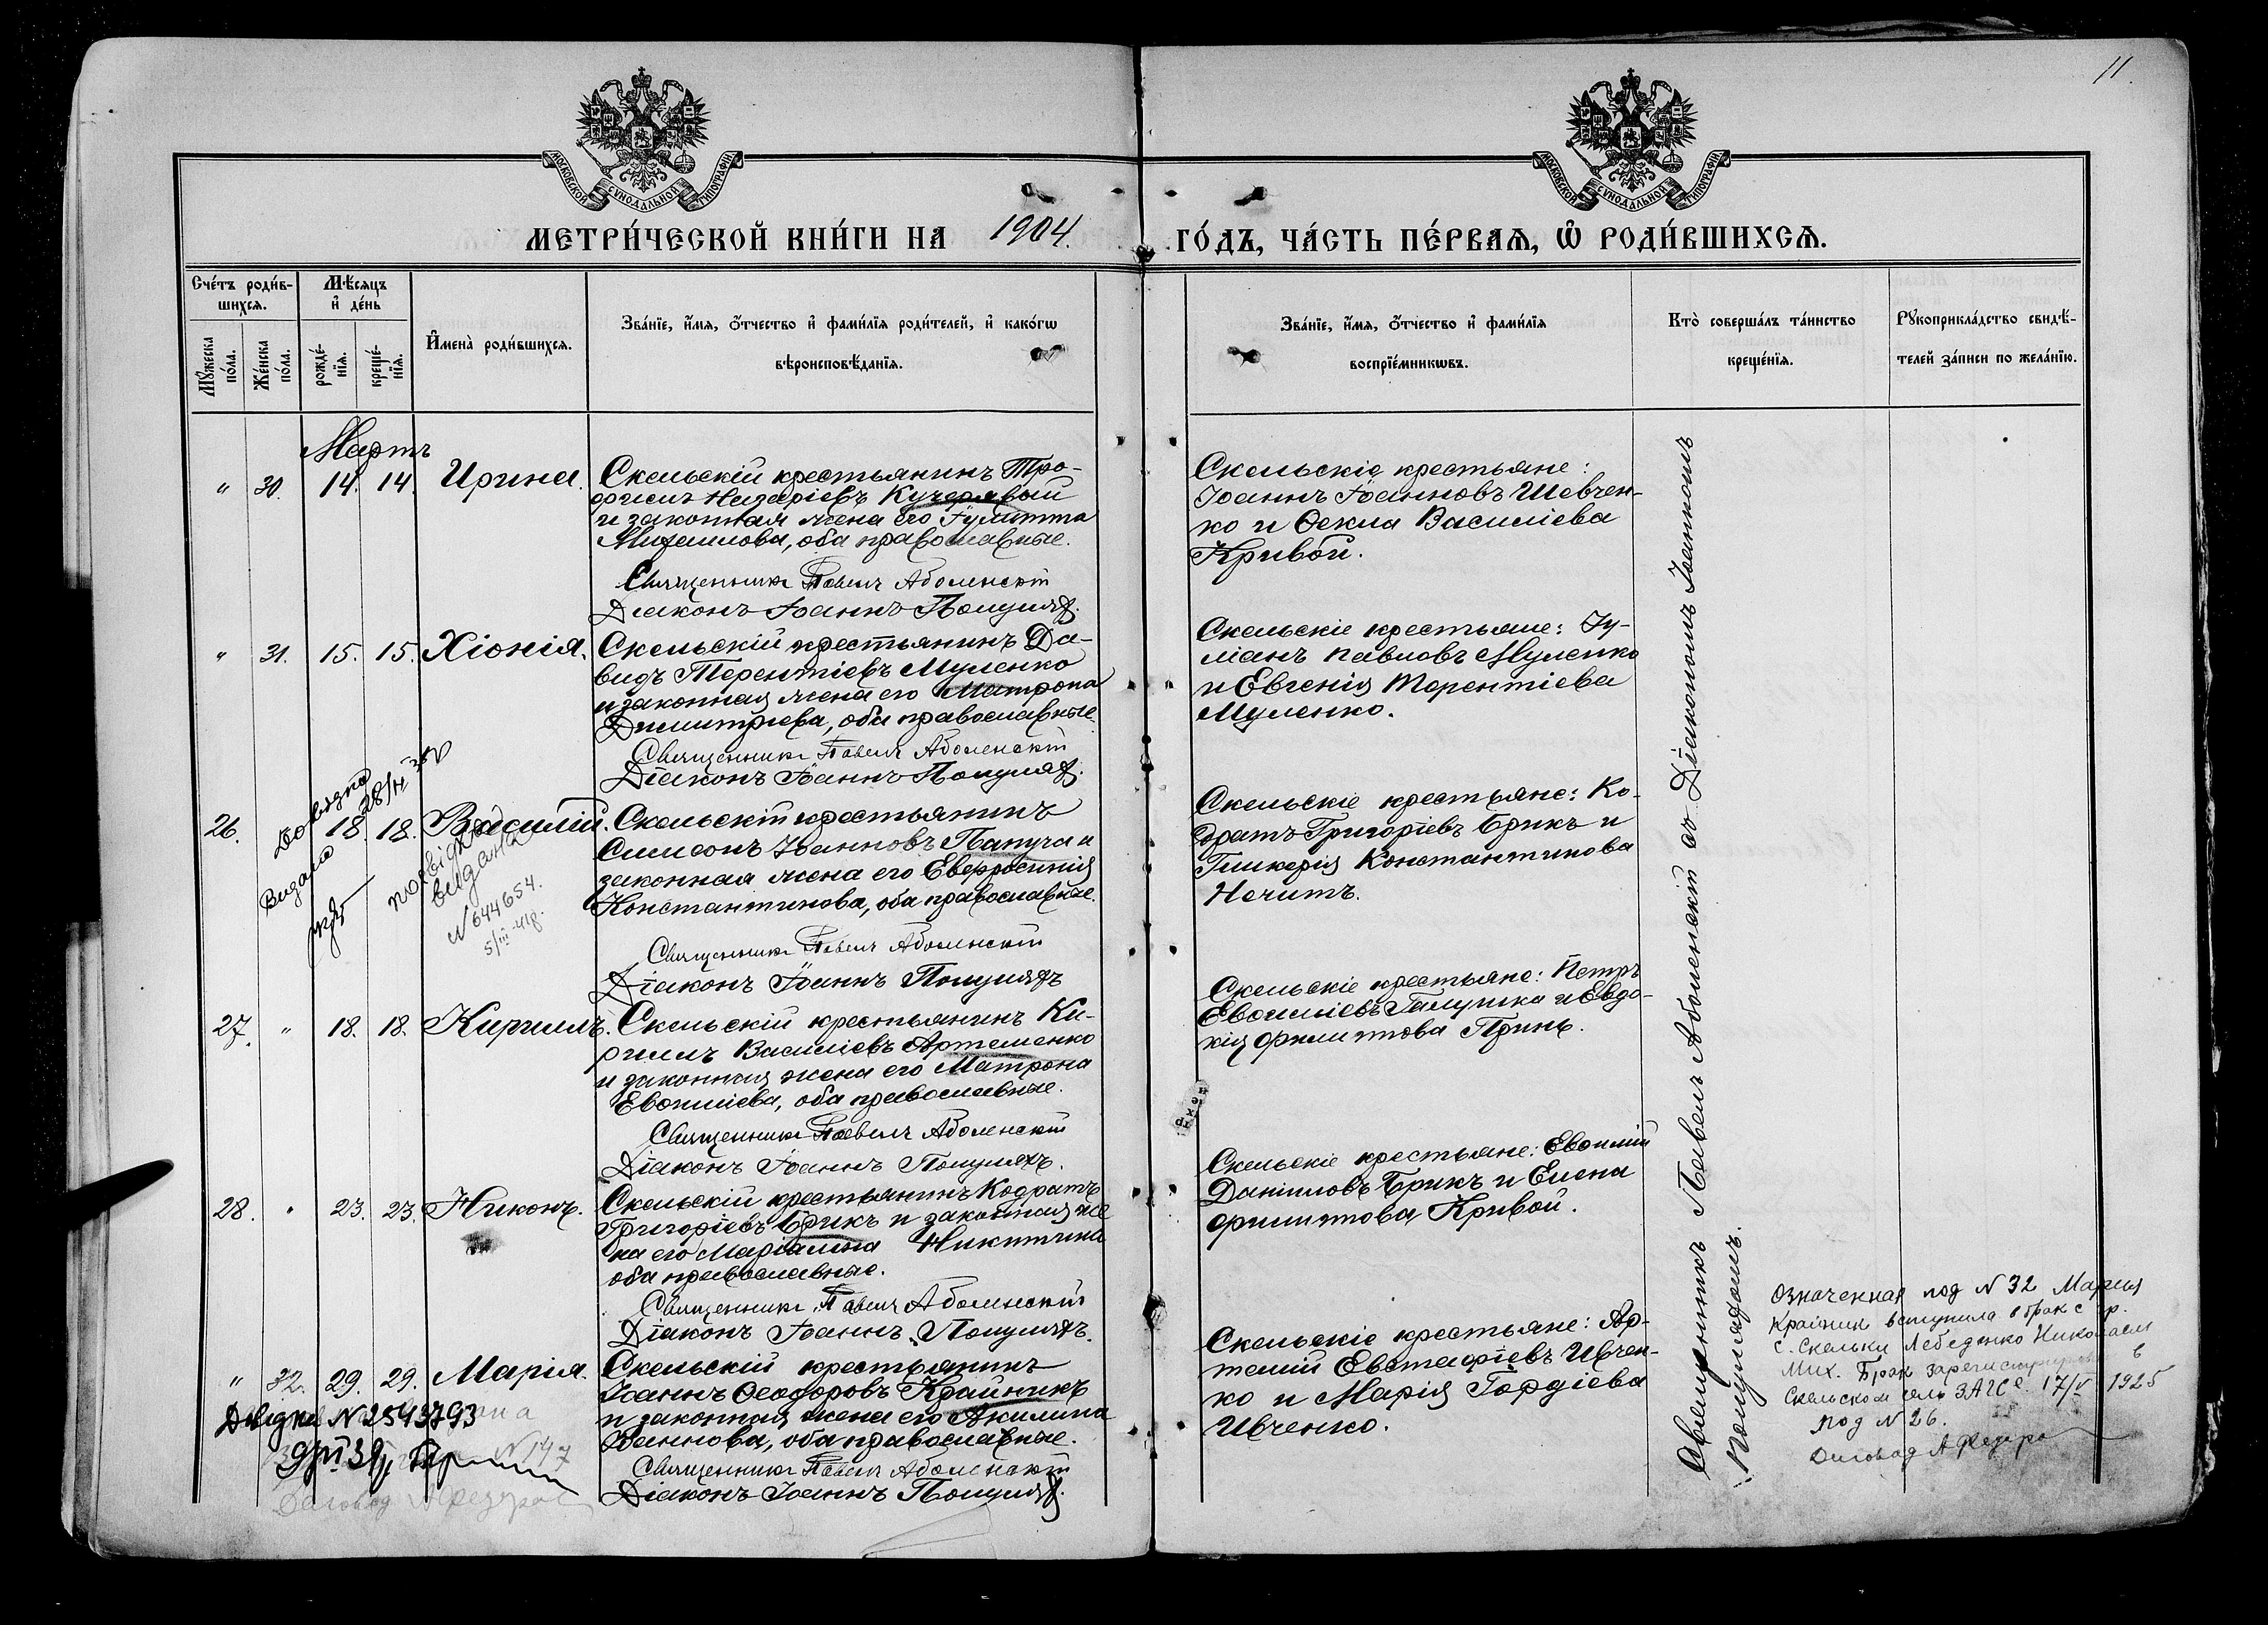 11.
МОСКОВСКОЙ СѴНОДАЛЬНОЙ ТИПОГРАФІИ
МОСКОВСКОЙ СѴНОДАЛЬНОЙ ТИПОГРАФІИ
МЕТРИ́ЧЕСКОЙ КНИ́ГИ НА 1904. ГО́ДЪ, ЧА́СТЬ ПЕ́РВАѦ, Ѽ РОДИ́ВШИХСѦ.
Сче́тъ роди́в-
шихсѧ.
Мꙋ́жеска
по́ла.
Же́нска
по́ла.
Мѣ́сѧцъ
и҆ де́нь
рожде́-
нїѧ.
креще́-
нїѧ.
И҆мена̀ роди́вшихсѧ.
Зва́нїе, и҆́мѧ, ѻ҆́тчество и҆ фами́лїѧ роди́телей, и҆ како́гѡ
вѣроисповѣ́данїѧ.
Зва́нїе, и҆́мѧ, ѻ҆́тчество и҆ фами́лїѧ
воспрїе́мникѡвъ.
Кто̀ соверша́лъ та́инство
креще́нїѧ.
Рꙋкоприкла́дство свидѣ́-
телей за́писи по жела́нїю.
Мартъ
" 30. 14. 14. Ирина.
Скельскій крестьянинъ Тро-
фимъ Назаріевъ Кучерявый
и законная жена его Іулитта
Михаилова, оба православные.
Священникъ Павелъ Аболенскій
Діаконъ Іоаннъ Полуляхъ.
Скельскіе крестьяне:
Іоаннъ Іоанновъ Шевчен-
ко и Ѳекла Василіева
Кривой.
" 31. 15. 15. Хіонія.
Скельскій крестьянинъ Да-
видъ Терентіевъ Муленко
и законная жена его Матрона
Димитріева, оба православные.
Священникъ Павелъ Аболенскій
Діаконъ Іоаннъ Полуляхъ.
Скельскіе крестьяне: Іу-
ліанъ Павловъ Муленко
и Евгенія Терентіева
Муленко.
26. 18. 18. Василій.
Довідка
28/IV
Видана
посвідка
видана
N 644654.
5/III-41р.
Скельскій крестьянинъ
Симеонъ Іоанновъ Папуча и
законная жена его Евфросинія
Константинова, оба православные.
Священникъ Павелъ Аболенскій
Діаконъ Іоаннъ Полуляхъ
Скельскіе крестьяне: Ко-
дратъ Григоріевъ Брикъ и
Гликерія Константинова
Нечитъ.
27. " 18. 18. Кириллъ.
Скельскій крестьянинъ Ки-
риллъ Василіевъ Артеменко
и законная жена его Матрона
Евѳиміева, оба православные.
Священникъ Павелъ Аболенскій
Діаконъ Іоаннъ Полуляхъ.
Скельскіе крестьяне: Петръ
Евѳиміевъ Галушка и Евдо-
кія Филиппова Принь.
28. " 23. 23. Никонъ.
Скельскій крестьянинъ Кодратъ
Григоріевъ Брикъ и законная же-
на его Маріамна Никитина
оба православные.
Священникъ Павелъ Аболенскій
Діаконъ Іоаннъ Полуляхъ.
Скельскіе крестьяне: Евѳимій
Даніиловъ Брикъ и Елена
Филиппова Кривой.
" 32. 29. 29. Марія.
Скельскій крестьянинъ
Іоаннъ Ѳеодоровъ Крайникъ
и законная жена его Акилина
Іоаннова, оба православные.
Священникъ Павелъ Аболенскій
Діаконъ Іоаннъ Полуляхъ.
N 2543793
N 147
Скельскіе крестьяне: Ар-
темій Евстафіевъ Ивчен-
ко и Марія Гордіева
Ивченко.
Священникъ Павелъ Аболенскій съ Діакономъ Іоанномъ
Полуляхомъ.
Означенная под N 32 Мария
Крайник вступила в брак с гр.
с. Скельки Лебеденко Николаем
Мих. Брак зарегистрирован в
Скельском ЗАГСе 17/V 1925
под N 26.